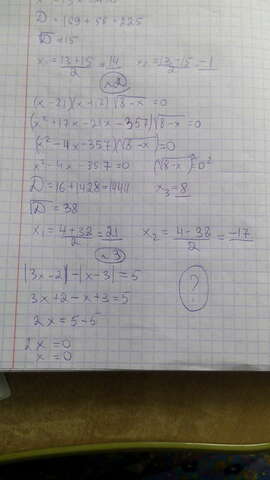 D = 169 + 56 = 225
√D = 15
x₁ = 13+15/2 = 14 x₂ = 13-15/2 = -1
№2
(x-21)(x+17)√8-x = 0
(x²+17x-21x-357)√8-x = 0
(x²-4x-357)(√8-x) = 0
x²-4x-357=0 (√8-x)²=0²
D = 16+1428=1444 x₃=8
√D = 38
x₁ = 4+38/2 = 21 x₂ = 4-38/2 = -17
№3
|3x-2|-|x-3|=5
3x+2-x+3=5
?
2x=5-5
2x=0
x=0